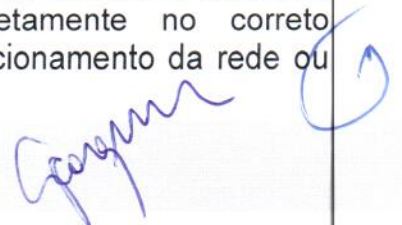 etamente no correto
cionamento da rede ou